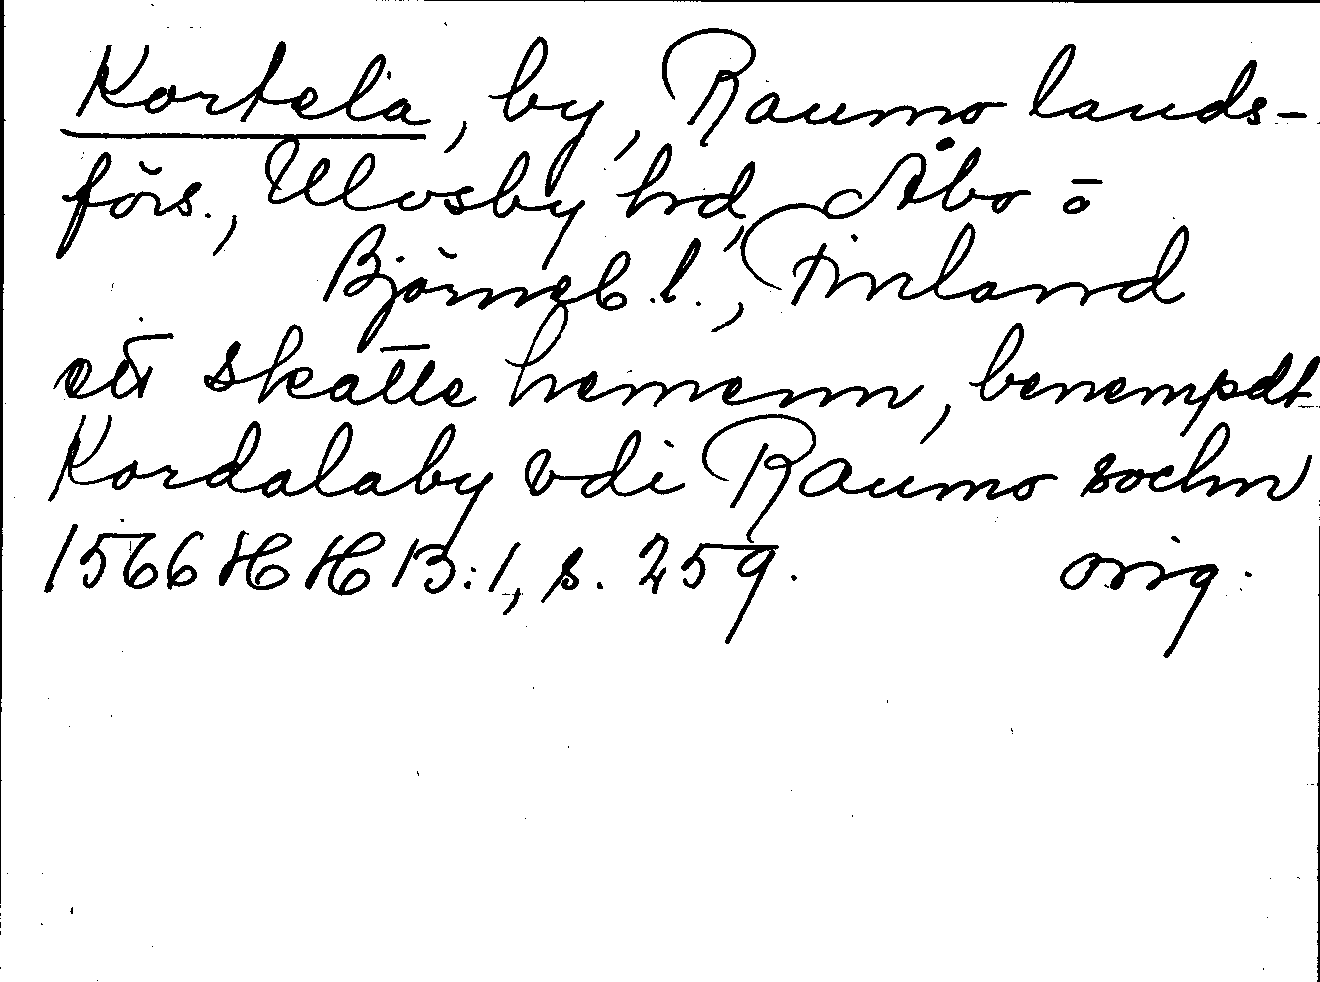 Kortela, by, Raumo lands-
förs., Ulvsby hd, Åbo o
Björneb. l., Finland
ett skatte hemenn, benempdt
Kordalaby vdi Raumo sochn
1566 HH B:1, s. 259. orig.